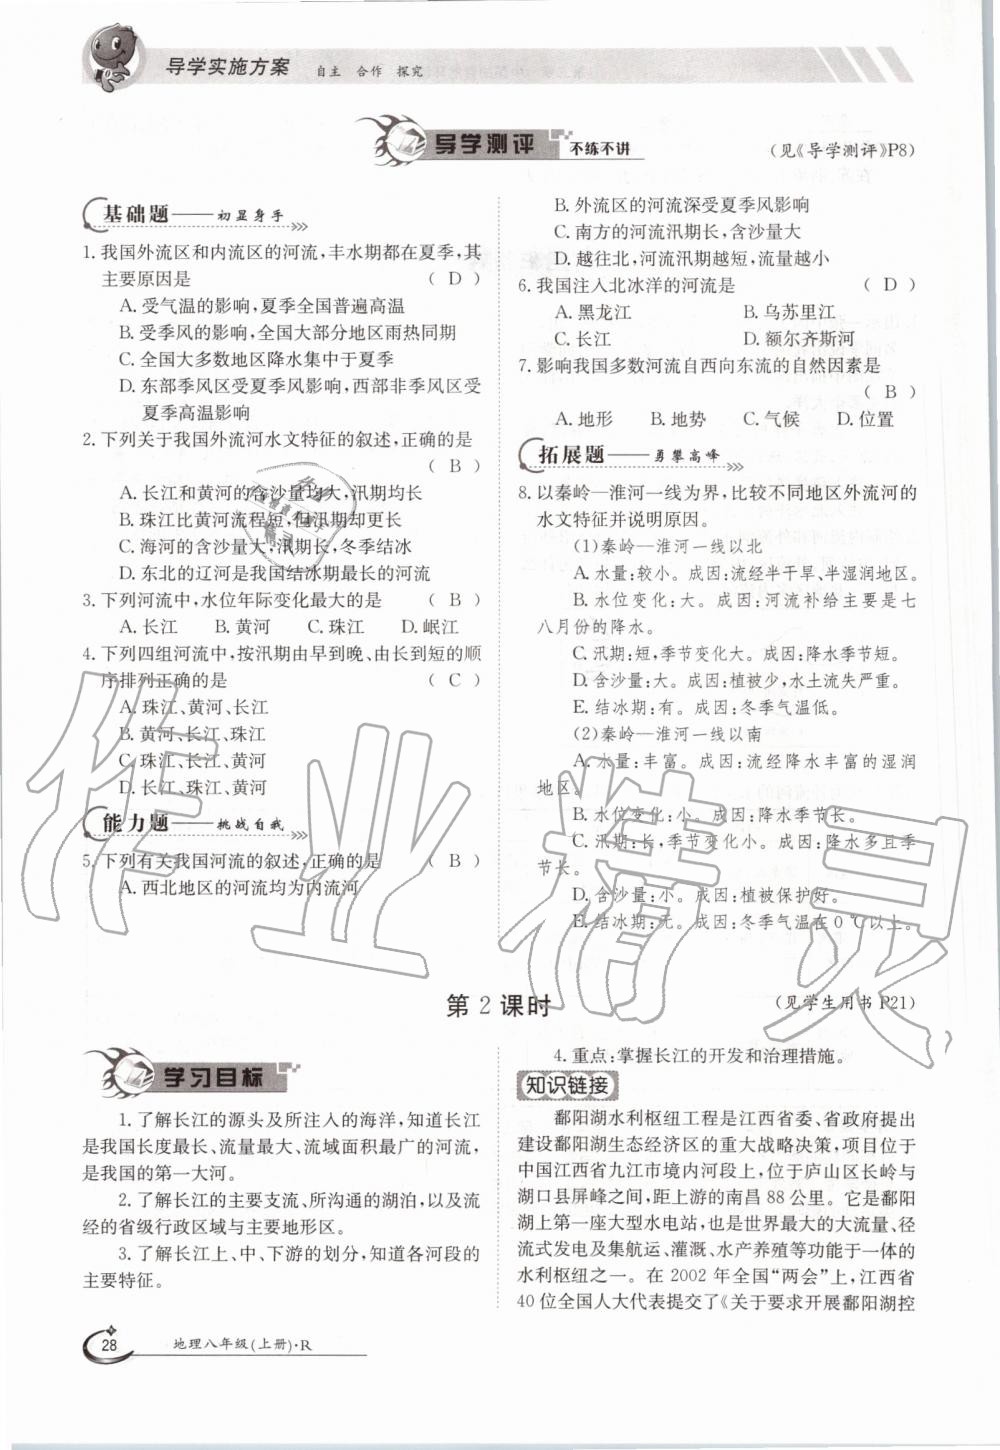 导学实施方案 自主 合作 探究
导学测评 不练不讲
(见《导学测评》P8)
基础题——初显身手
1. 我国外流区和内流区的河流,丰水期都在夏季,其
主要原因是 ( D )
A. 受气温的影响,夏季全国普遍高温
B. 受季风的影响,全国大部分地区雨热同期
C. 全国大多数地区降水集中于夏季
D. 东部季风区受夏季风影响,西部非季风区受
夏季高温影响
2. 下列关于我国外流河水文特征的叙述,正确的是
( B )
A. 长江和黄河的含沙量均大,汛期均长
B. 珠江比黄河流程短,但汛期却更长
C. 海河的含沙量大,汛期长,冬季结冰
D. 东北的辽河是我国结冰期最长的河流
3. 下列河流中,水位年际变化最大的是 ( B )
A. 长江 B. 黄河 C. 珠江 D. 岷江
4. 下列四组河流中,按汛期由早到晚、由长到短的顺
序排列正确的是 ( C )
A. 珠江、黄河、长江
B. 黄河、长江、珠江
C. 珠江、长江、黄河
D. 长江、珠江、黄河
能力题——挑战自我
5. 下列有关我国河流的叙述,正确的是 ( B )
A. 西北地区的河流均为内流河
B. 外流区的河流深受夏季风影响
C. 南方的河流汛期长,含沙量大
D. 越往北,河流汛期越短,流量越小
6. 我国注入北冰洋的河流是 ( D )
A. 黑龙江 B. 乌苏里江
C. 长江 D. 额尔齐斯河
7. 影响我国多数河流自西向东流的自然因素是
( B )
A. 地形 B. 地势 C. 气候 D. 位置
拓展题——勇攀高峰
8. 以秦岭—淮河一线为界,比较不同地区外流河的
水文特征并说明原因。
(1)秦岭—淮河一线以北
A. 水量:较小。成因:流经半干旱、半湿润地区。
B. 水位变化:大。成因:河流补给主要是七
八月份的降水。
C. 汛期:短,季节变化大。成因:降水季节短。
D. 含沙量:大。成因:植被少,水土流失严重。
E. 结冰期:有。成因:冬季气温低。
(2)秦岭—淮河一线以南
A. 水量:丰富。成因:流经降水丰富的湿润
地区。
B. 水位变化:小。成因:降水季节长。
C. 汛期:长,季节变化小。成因:降水多且季
节长。
D. 含沙量:小。成因:植被保护好。
E. 结冰期:无。成因:冬季气温在0℃以上。
第2课时
(见学生用书P21)
学习目标
1. 了解长江的源头及所注入的海洋,知道长江
是我国长度最长、流量最大、流域面积最广的河流,
是我国的第一大河。
2. 了解长江的主要支流、所沟通的湖泊,以及流
经的省级行政区域与主要地形区。
3. 了解长江上、中、下游的划分,知道各河段的
主要特征。
4. 重点:掌握长江的开发和治理措施。
知识链接
鄱阳湖水利枢纽工程是江西省委、省政府提出
建设鄱阳湖生态经济区的重大战略决策,项目位于
中国江西省九江市境内河段上,位于庐山区长岭与
湖口县屏峰之间,距上游的南昌88公里。它是鄱阳
湖上第一座大型水电站,也是世界最大的大流量、径
流式发电及集航运、灌溉、水产养殖等功能于一体的
水利枢纽之一。在2002年全国“两会”上,江西省
40位全国人大代表提交了《关于要求开展鄱阳湖控
28 地理八年级(上册)·R
作业精灵